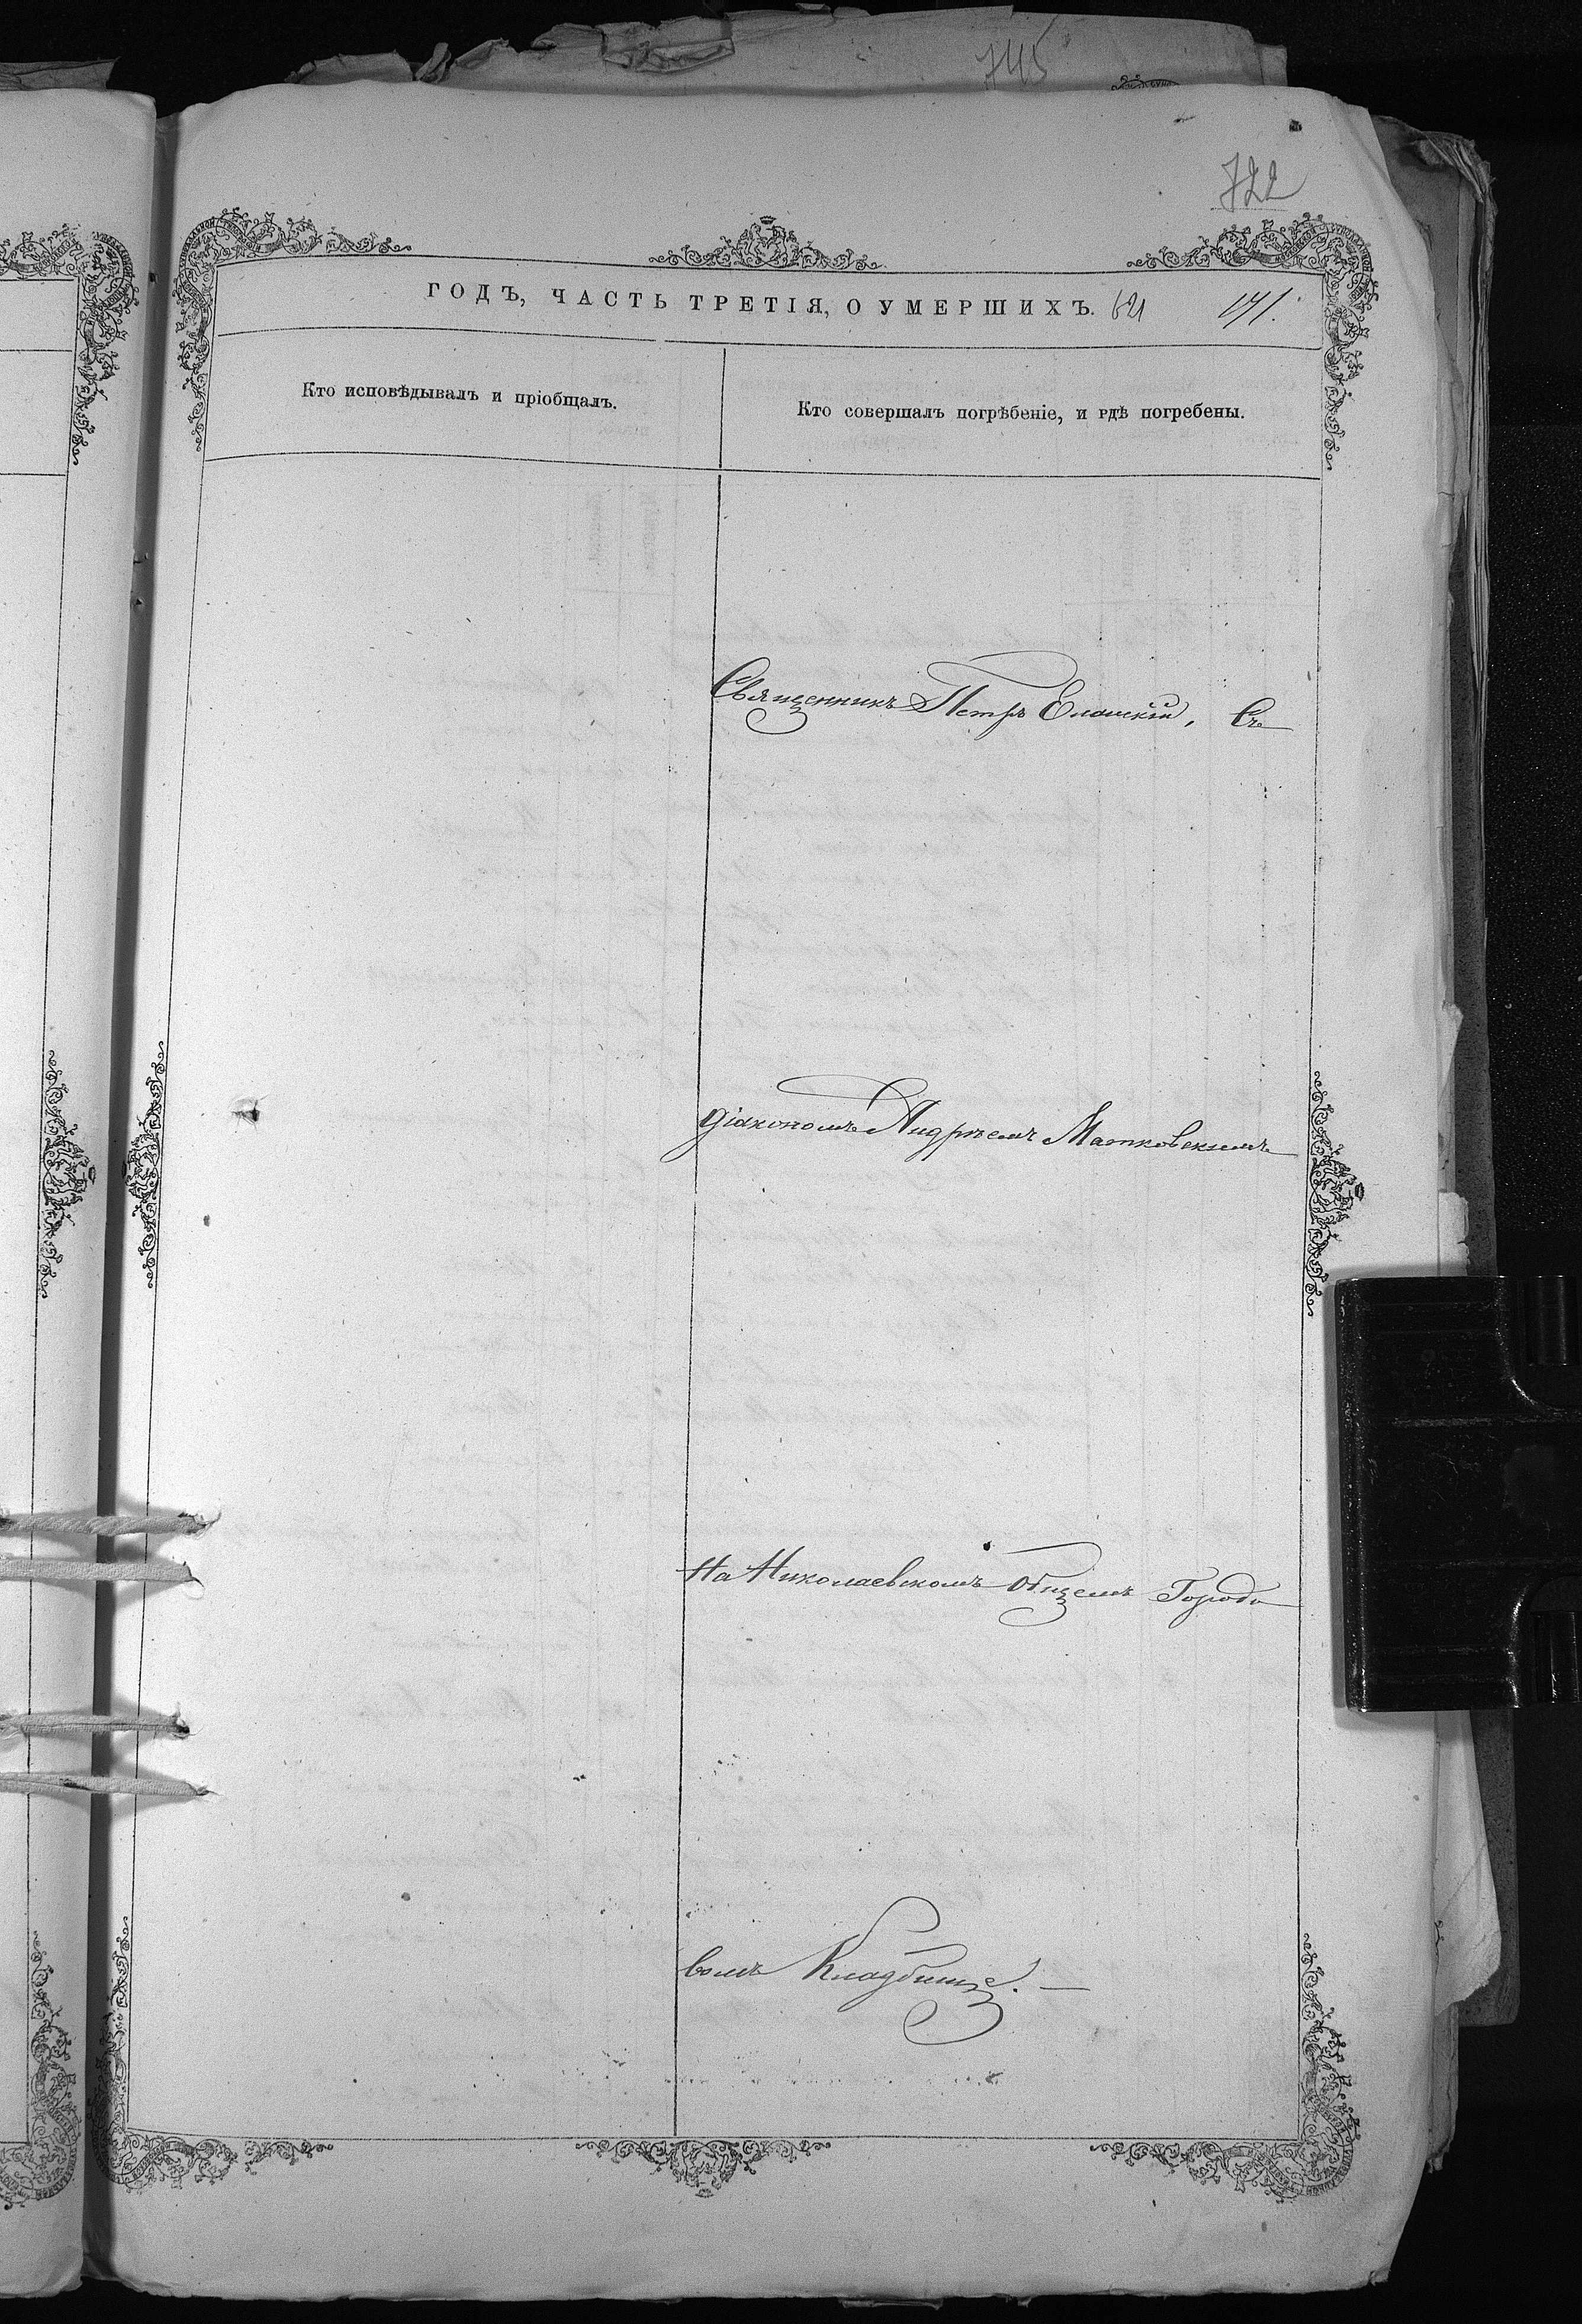 745
722
ГОДЪ, ЧАСТЬ ТРЕТІЯ, О УМЕРШИХЪ. 621 171.
Кто исповѣдывалъ и пріобщалъ.
Кто совершалъ погрѣбеніе, и гдѣ погребены.
Священникъ Петръ Еланскій, Съ
діакономъ Андреемъ Матковскимъ
На Николаевскомъ Общемъ Городо
вомъ Кладбищѣ. —